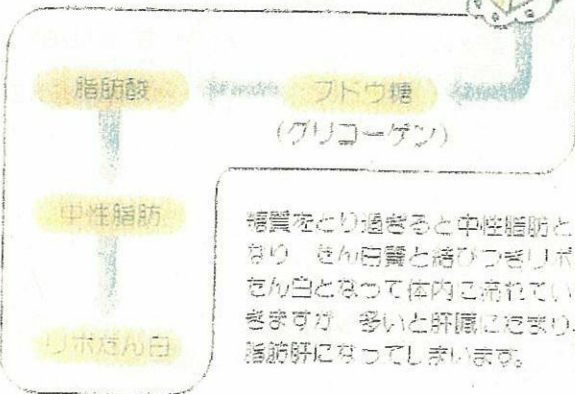 脂肪酸
ブドウ糖
(グリコーゲン)
中性脂肪
リポたん白
糖質をとり過ぎると中性脂肪と
なり たん白質と結びつきリポ
たん白となって体内に流れてい
きますが、多いと肝臓にたまり、
脂肪肝になってしまいます。